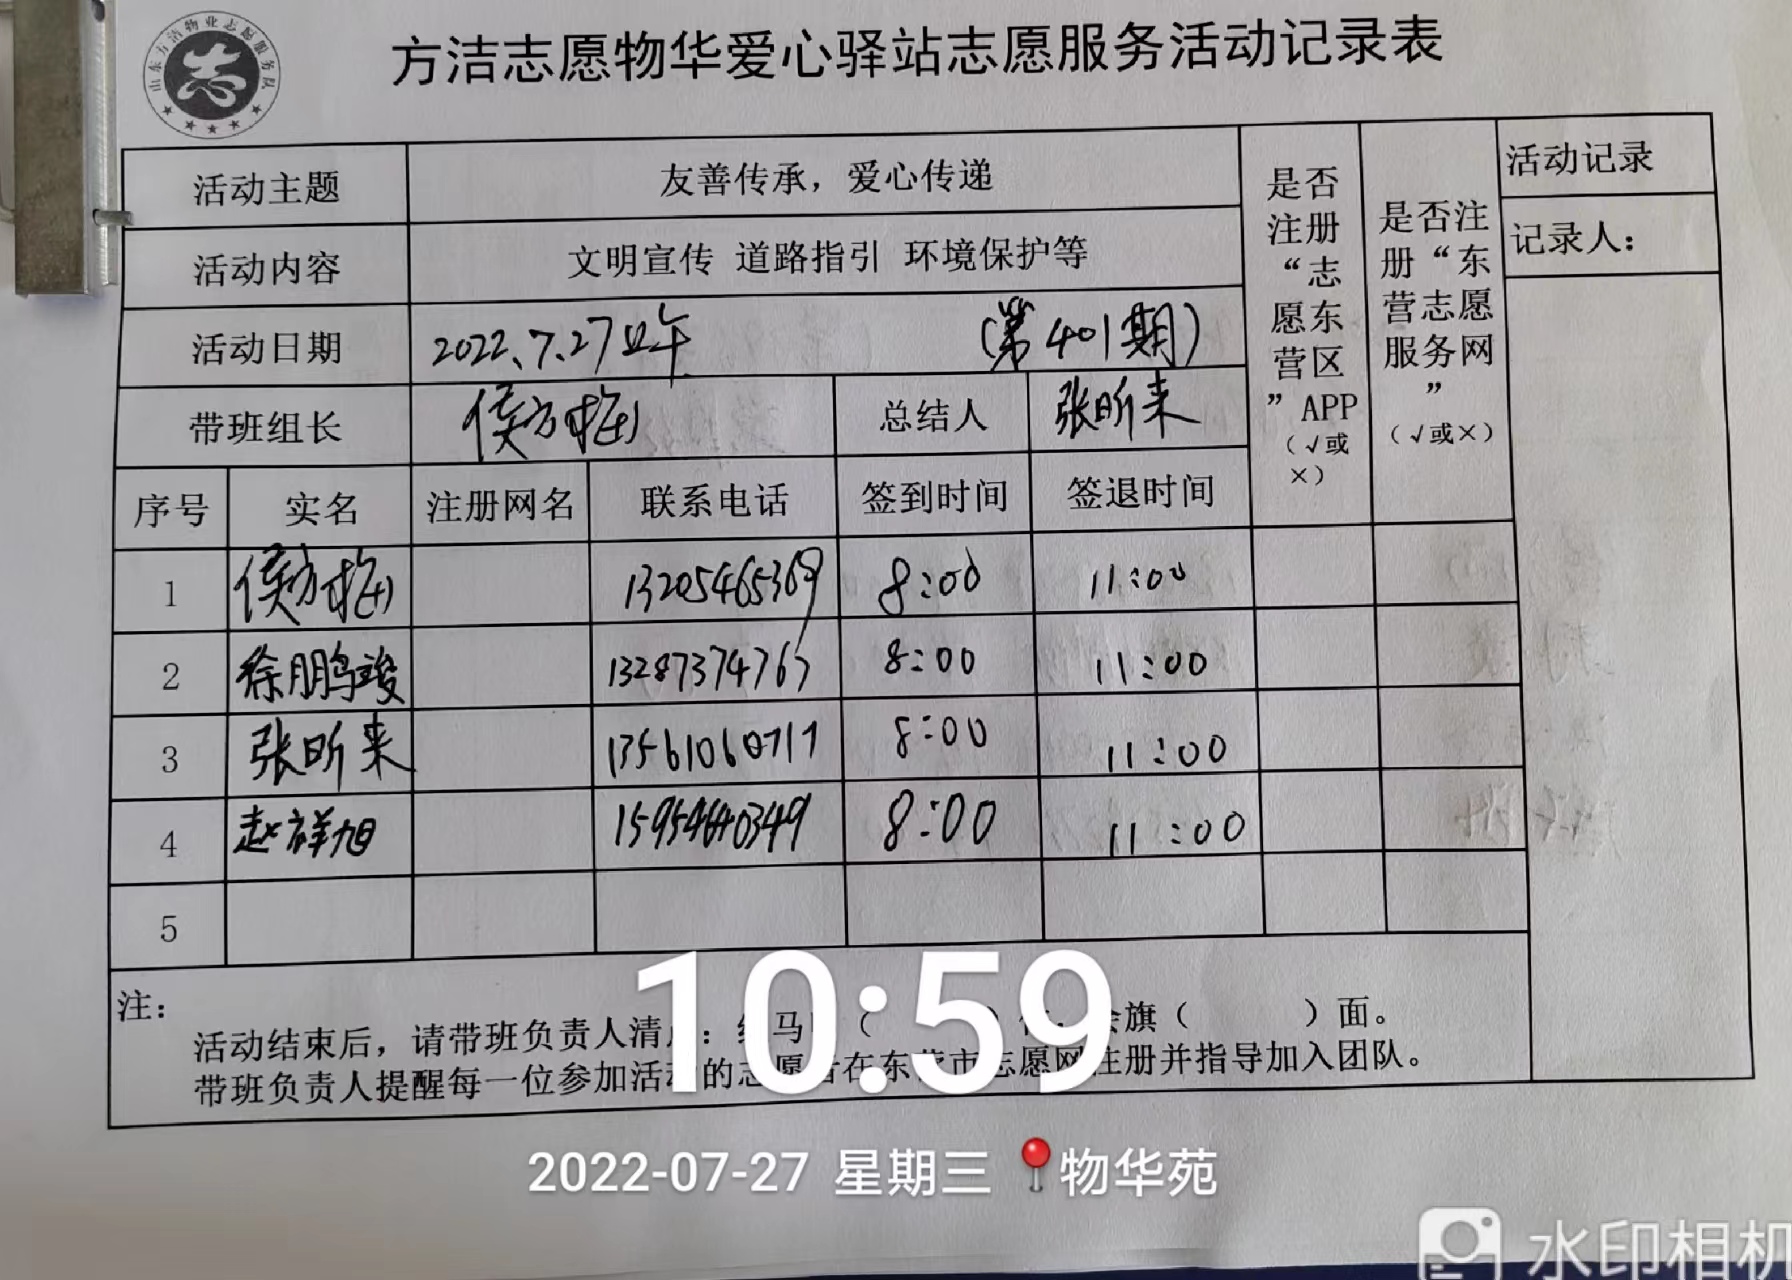 山东方洁物业志愿服务队
志
方洁志愿物华爱心驿站志愿服务活动记录表
活动主题 友善传承，爱心传递
活动内容 文明宣传 道路指引 环境保护等
活动日期 2022.7.27上午 (第401期)
带班组长 侯方梅 总结人 张昕来
是否
注册
“志
愿东
营区
”APP
（√或
×）
是否注
册“东
营志愿
服务网
”
（√或×）
活动记录
记录人：
序号 实名 注册网名 联系电话 签到时间 签退时间
1 侯方梅 13205465369 8:00 11:00
2 徐鹏 1328737476 8:00 11:00
3 张昕来 13561060717 8:00 11:00
4 赵祥旭 15954640349 8:00 11:00
5
注：
活动结束后，请带班负责人清 ：马（ ） 旗（ ）面。
带班负责人提醒每一位参加活动的志愿者在东营市志愿网注册并指导加入团队。
10:59
2022-07-27 星期三 物华苑
水印相机